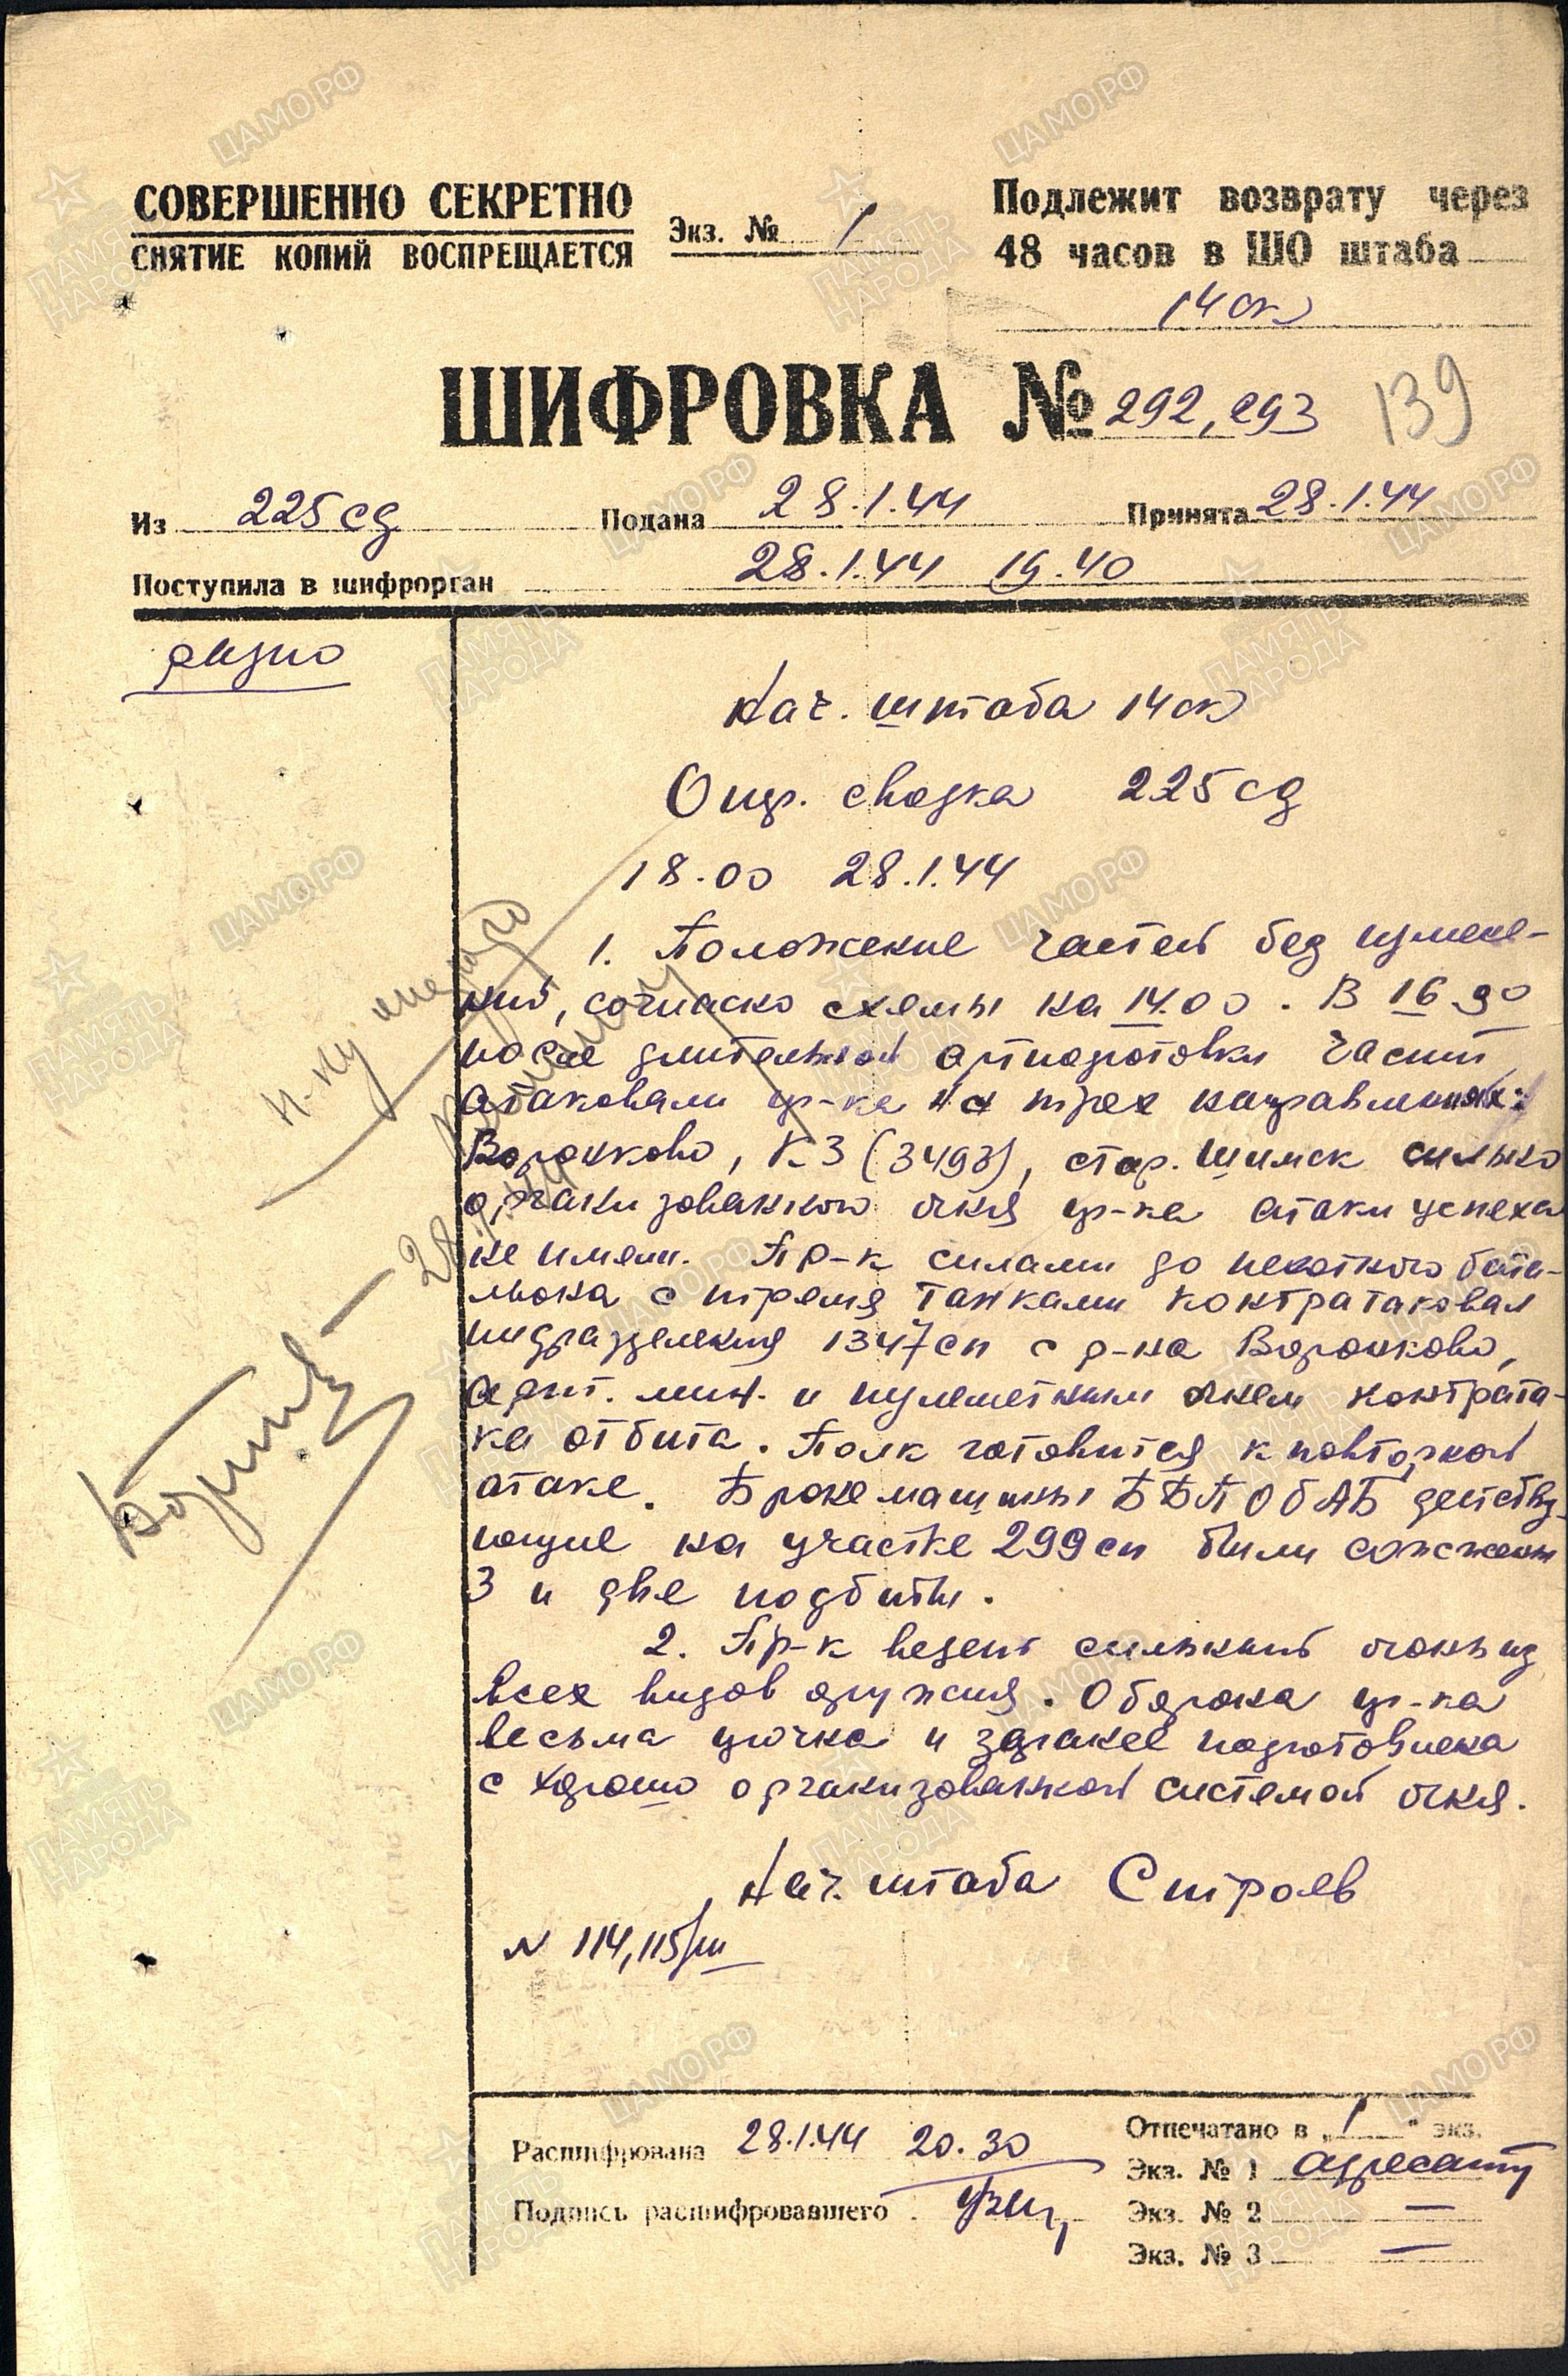 СОВЕРШЕННО СЕКРЕТНО
СНЯТИЕ КОПИЙ ВОСПРЕЩАЕТСЯ
Экз. № 1
Подлежит возврату через
48 часов в ШО штаба
14 ск
ШИФРОВКА № 292, 293
139
Из 225 сд Подана 28.1.44 Принята 28.1.44
Поступила в шифрорган 28.1.44 19.40
радио
Нач. штаба 14 ск
Опер. сводка 225 сд
18.00 28.1.44
1. Положение частей без измене-
ний, согласно схемы на 14.00. В 16.30
после длительной артподготовки части
атаковали пр-ка на трех направлениях:
Воронково, КЗ (3493), стар. Шимск сильно
организованного огня пр-ка атаки успеха
не имели. Пр-к силами до пехотного бата-
льона с тремя танками контратаковал
подразделения 1347 сп с р-на Воронково,
арт. мин. и пулеметным огнем контрата-
ка отбита. Полк готовится к повторной
атаке. Бронемашины ББП ОБАБ действу-
ющие на участке 299 сп были сожжены
3 и две подбиты.
2. Пр-к ведет сильный огонь из
всех видов оружия. Оборона пр-ка
весьма прочна и заранее подготовлена
с хорошо организованной системой огня.
Нач. штаба Строев
N 114, 115/ш
28.1.44
Расшифрована 28.1.44 20.30
Подпись расшифровавшего
Отпечатано в „1" экз.
Экз. № 1 адресату
Экз. № 2 —
Экз. № 3 —
ЦАМО РФ
ПАМЯТЬ НАРОДА